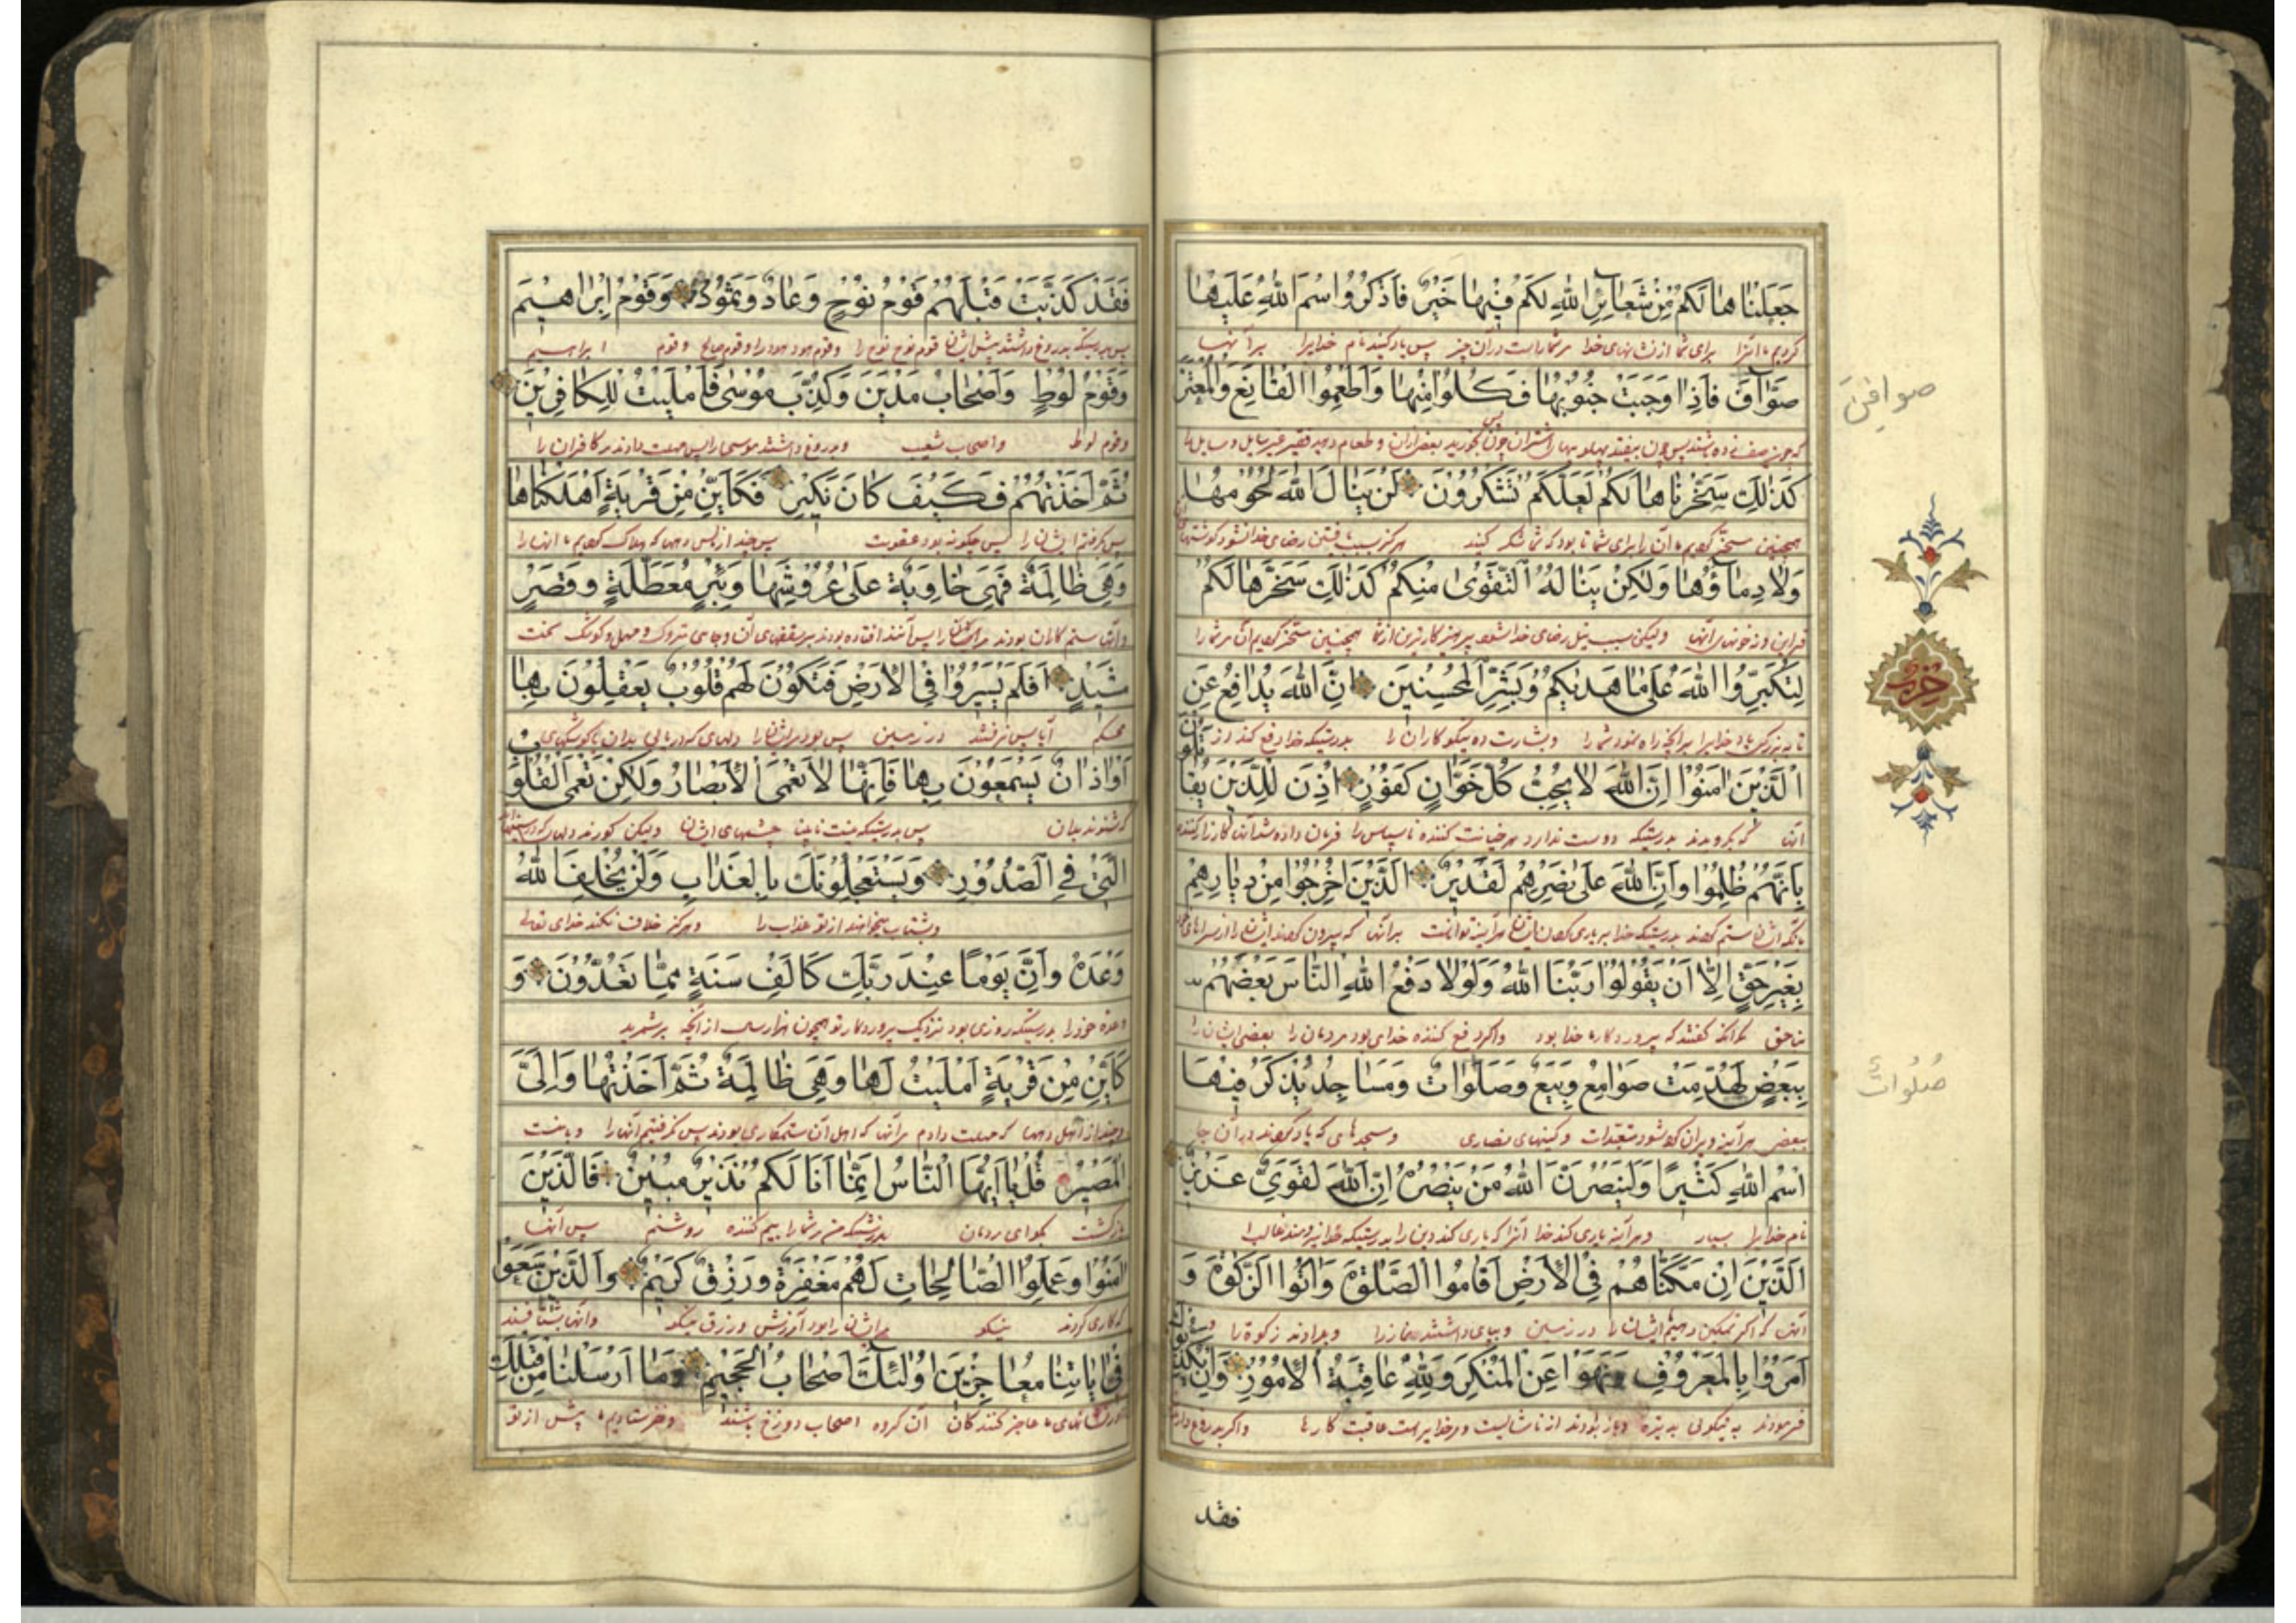 جَعَلْنَاهَا لَكُمْ مِنْ شَعَائِرِ اللَّهِ لَكُمْ فِيهَا خَيْرٌ فَاذْكُرُوا اسْمَ اللَّهِ عَلَيْهَا
کردیم ما آنرا برای شما از نشانهای خدا مر شما راست در آن چیز پس یاد کنید نام خدایرا بر آنها
صَوَافَّ فَاِذَا وَجَبَتْ جُنُوبُهَا فَكُلُوا مِنْهَا وَاَطْعِمُوا الْقَانِعَ وَالْمُعْتَرَّ
صوافن
پس چون بیفتد بخورید بعض از آن و طعام دهید فقیر غیر سایل و سایل را
كَذٰلِكَ سَخَّرْنَاهَا لَكُمْ لَعَلَّكُمْ تَشْكُرُونَ لَنْ يَنَالَ اللَّهَ لُحُومُهَا
همچنین مسخّر کردیم ما آن را برای شما تا بود که شما شکر کنید هرگز رضای خدا نشود گوشتهای
وَلَا دِمَاؤُهَا وَلٰكِنْ يَنَالُهُ التَّقْوٰى مِنْكُمْ كَذٰلِكَ سَخَّرَهَا لَكُمْ
ونه خونهای آنها ولیکن سبب نیل رضای خدا شود پرهیزکاری از شما همچنین مسخّر کردیم آن مر شما را
لِتُكَبِّرُوا اللَّهَ عَلٰى مَا هَدٰيكُمْ وَبَشِّرِ الْمُحْسِنِينَ اِنَّ اللَّهَ يُدَافِعُ عَنِ
تا ببزرگی یاد خدایرا بر آنچه راه نمود شما را و بشارت ده نیکوکاران را بدرستیکه خدا دفع کند از
الَّذِينَ اٰمَنُوا اِنَّ اللَّهَ لَا يُحِبُّ كُلَّ خَوَّانٍ كَفُورٍ اُذِنَ لِلَّذِينَ يُقَاتَلُونَ
آنان که بگرویدند بدرستیکه دوست ندارد هر خیانت کننده ناسپاس را فرمان داده شد آنان کارزار کننده
بِاَنَّهُمْ ظُلِمُوا وَاِنَّ اللَّهَ عَلٰى نَصْرِهِمْ لَقَدِيرٌ الَّذِينَ اُخْرِجُوا مِنْ دِيَارِهِمْ
بآنکه ایشان ستم کردند بدرستیکه خدا بر یاری کردن ایشان هر آینه تواناست بر آنها که بیرون کردند ایشان را از سراهای
بِغَيْرِ حَقٍّ اِلَّا اَنْ يَقُولُوا رَبُّنَا اللَّهُ وَلَوْلَا دَفْعُ اللَّهِ النَّاسَ بَعْضَهُمْ
بناحق مگر آنکه گفتند که پروردگار ما خدا بود واگر دفع کننده خدای بود مردمان را بعضی ایشان را
بِبَعْضٍ لَهُدِّمَتْ صَوَامِعُ وَبِيَعٌ وَصَلَوَاتٌ وَمَسَاجِدُ يُذْكَرُ فِيهَا
صلوات
ببعض هر آینه ویران کرده شود متعبّدات وکنیهای نصاری ومسجدهای که یاد کردند در آن جا
اسْمُ اللَّهِ كَثِيرًا وَلَيَنْصُرَنَّ اللَّهُ مَنْ يَنْصُرُهُ اِنَّ اللَّهَ لَقَوِيٌّ عَزِيزٌ
نام خدایرا بسیار وهر آینه یاری کند خدا آنرا که یاری کند دین را بدرستیکه خدا نیرومند غالب
الَّذِينَ اِنْ مَكَّنَّاهُمْ فِي الْاَرْضِ اَقَامُوا الصَّلٰوةَ وَاٰتَوُا الزَّكٰوةَ وَ
آنان که اگر تمکین دهیم ایشان را در زمین وبپای داشتند نماز را وبدادند زکوة را و
اَمَرُوا بِالْمَعْرُوفِ وَنَهَوْا عَنِ الْمُنْكَرِ وَلِلَّهِ عَاقِبَةُ الْاُمُورِ وَاِنْ يُكَذِّبُوكَ
فرمودند به نیکوئی وباز از ناشایست ومر خدایراست عاقبت کارها واگر بدروغ
حزب
فقد
فَقَدْ كَذَّبَتْ قَبْلَهُمْ قَوْمُ نُوحٍ وَعَادٌ وَثَمُودُ وَقَوْمُ اِبْرَاهِيمَ
پس بدرستیکه بدروغ داشتند پیش ایشان قوم نوح نوح را وقوم هود هود را وقوم صالح وقوم ابراهیم
وَقَوْمُ لُوطٍ وَاَصْحَابُ مَدْيَنَ وَكُذِّبَ مُوسٰى فَاَمْلَيْتُ لِلْكَافِرِينَ
وقوم لوط واصحاب شعیب وبدروغ داشتند موسی را پس مهلت دادند مر کافران را
ثُمَّ اَخَذْتُهُمْ فَكَيْفَ كَانَ نَكِيرِ فَكَاَيِّنْ مِنْ قَرْيَةٍ اَهْلَكْنَاهَا
پس گرفتم ایشان را پس چگونه بود عقوبت پس چند از دهها که هلاک کردیم ما آنها را
وَهِيَ ظَالِمَةٌ فَهِيَ خَاوِيَةٌ عَلٰى عُرُوشِهَا وَبِئْرٍ مُعَطَّلَةٍ وَقَصْرٍ
وآن ستم کاران بودند پس افتاده بودند بر سقفهای آن وچاهی متروک ومهمل وکوشک سخت
مَشِيدٍ اَفَلَمْ يَسِيرُوا فِي الْاَرْضِ فَتَكُونَ لَهُمْ قُلُوبٌ يَعْقِلُونَ بِهَا
محکم آیا پس نرفتند در زمین پس بود مر ایشان را دلهای که دریابی بدان یا گوشهای
اَوْ اٰذَانٌ يَسْمَعُونَ بِهَا فَاِنَّهَا لَا تَعْمَى الْاَبْصَارُ وَلٰكِنْ تَعْمَى الْقُلُوبُ
که شنوند بدان پس بدرستیکه نیست نابینا چشمهای ایشان ولیکن کورند دلها که در سینها
الَّتِي فِي الصُّدُورِ وَيَسْتَعْجِلُونَكَ بِالْعَذَابِ وَلَنْ يُخْلِفَ اللَّهُ
وبشتاب میخواهند از تو عذاب را وهرگز خلاف نکند خدای تعالی
وَعْدَهُ وَاِنَّ يَوْمًا عِنْدَ رَبِّكَ كَاَلْفِ سَنَةٍ مِمَّا تَعُدُّونَ وَ
وعده خود را بدرستیکه روزی بود نزدیک پروردگار تو همچون هزار سال از آنچه بر شمرید
كَاَيِّنْ مِنْ قَرْيَةٍ اَمْلَيْتُ لَهَا وَهِيَ ظَالِمَةٌ ثُمَّ اَخَذْتُهَا وَاِلَيَّ
وچند از اهل دهها که مهلت دادم مر آنها که اهل آن ستمکاری بودند پس گرفتیم آنها را وبا منست
الْمَصِيرُ قُلْ يَا اَيُّهَا النَّاسُ اِنَّمَا اَنَا لَكُمْ نَذِيرٌ مُبِينٌ فَالَّذِينَ
بازگشت بگو ای مردمان بدرستیکه من شما را بیم کننده روشنم پس آنها
اٰمَنُوا وَعَمِلُوا الصَّالِحَاتِ لَهُمْ مَغْفِرَةٌ وَرِزْقٌ كَرِيمٌ وَالَّذِينَ سَعَوْا
که کاری کردند نیکو مر ایشان را بود آمرزش ورزق نیکو وآنها بشتافتند
فِي اٰيَاتِنَا مُعَاجِزِينَ اُولٰئِكَ اَصْحَابُ الْجَحِيمِ وَمَا اَرْسَلْنَا مِنْ قَبْلِكَ
نشانهای ما عاجز کنندگان آن گروه اصحاب دوزخ باشند ونفرستادیم ما پیش از تو